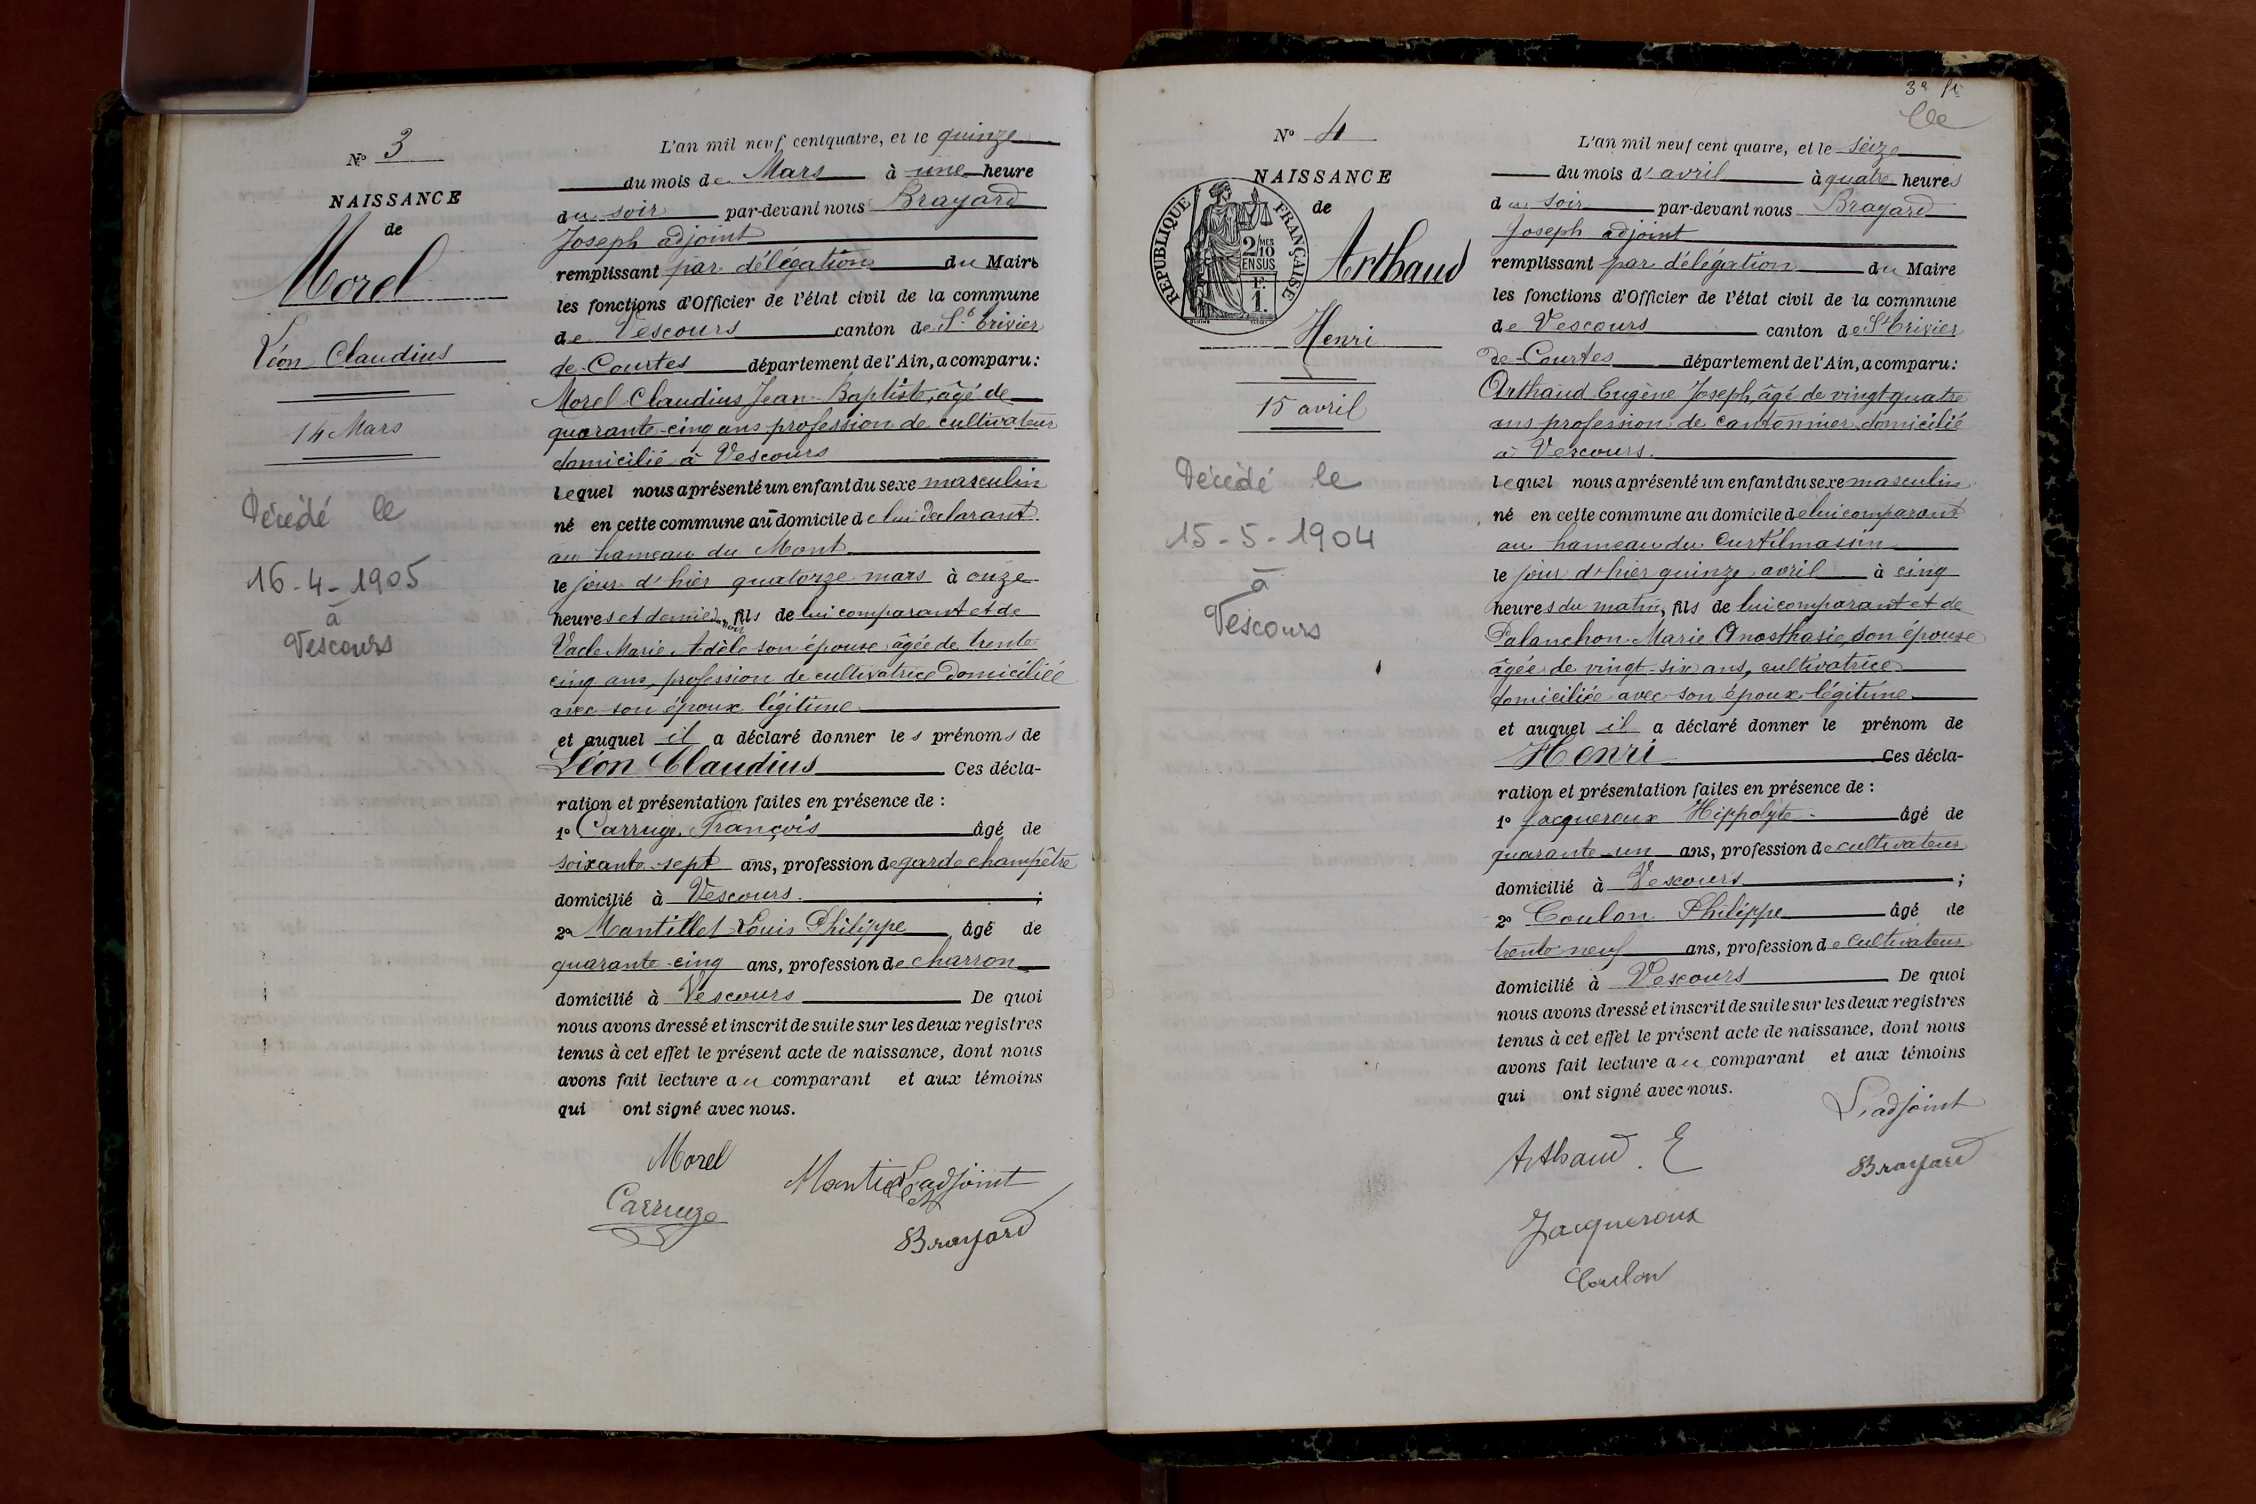 N° 3
NAISSANCE
de
Morel
Léon Claudius
14 Mars
Décédé le
16-4-1905
à
Vescours
L'an mil neuf cent quatre, et le quinze
du mois de Mars à une heure
du soir par-devant nous Brayard
Joseph adjoint
remplissant par délégation du Maire
les fonctions d'Officier de l'état civil de la commune
de Vescours canton de St Trivier
de-Courtes département de l'Ain, a comparu :
Morel Claudius Jean-Baptiste, âgé de
quarante-cinq ans profession de cultivateur
domicilié à Vescours
lequel nous a présenté un enfant du sexe masculin
né en cette commune au domicile de lui déclarant
au hameau du Mont
le jour d'hier quatorze mars à onze
heures et demie du soir, fils de lui comparant et de
Vacle Marie Adèle son épouse âgée de trente
cinq ans, profession de cultivatrice domiciliée
avec son époux légitime
et auquel il a déclaré donner les prénoms de
Léon Claudius Ces décla-
ration et présentation faites en présence de :
1° Carruge François âgé de
soixante-sept ans, profession de garde champêtre
domicilié à Vescours ;
2° Mantillet Louis Philippe âgé de
quarante-cinq ans, profession de charron
domicilié à Vescours De quoi
nous avons dressé et inscrit de suite sur les deux registres
tenus à cet effet le présent acte de naissance, dont nous
avons fait lecture au comparant et aux témoins
qui ont signé avec nous.
Morel
L'adjoint
Carruge
Brayard
3e
N° 4
NAISSANCE
de
RÉPUBLIQUE FRANÇAISE
2/10 MES
EN SUS
F.
1.
Arthaud
Henri
15 avril
Décédé le
15-5-1904
à
Vescours
L'an mil neuf cent quatre, et le seize
du mois d'avril à quatre heures
du soir par-devant nous Brayard
Joseph adjoint
remplissant par délégation du Maire
les fonctions d'Officier de l'état civil de la commune
de Vescours canton de St Trivier
de-Courtes département de l'Ain, a comparu :
Arthaud Eugène Joseph, âgé de vingt quatre
ans profession de cantonnier domicilié
à Vescours.
lequel nous a présenté un enfant du sexe masculin
né en cette commune au domicile de lui comparant
au hameau du Curtilmasin
le jour d'hier quinze avril à cinq
heures du matin, fils de lui comparant et de
Palanchon Marie Anasthasie, son épouse
âgée de vingt-six ans, cultivatrice
domiciliée avec son époux légitime
et auquel il a déclaré donner le prénom de
Henri Ces décla-
ration et présentation faites en présence de :
1° Jacqueroux Hippolyte âgé de
quarante-un ans, profession de cultivateur
domicilié à Vescours ;
2° Coulon Philippe âgé de
trente neuf ans, profession de cultivateur
domicilié à Vescours De quoi
nous avons dressé et inscrit de suite sur les deux registres
tenus à cet effet le présent acte de naissance, dont nous
avons fait lecture au comparant et aux témoins
qui ont signé avec nous.
L'adjoint
Arthaud. E
Brayard
Jacqueroux
Coulon